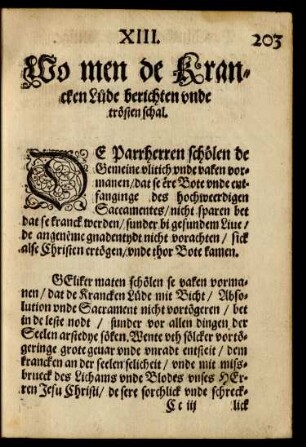 XIII.
203
Wo men de Kran-
cken Lüde berichten vnde
trösten schal.
DE Parrherren schölen de
Gemeine vlitich vnde vaken vor-
manen/dat se ere Bote vnde ent-
fanginge des hochwerdigen
Sacramentes/nicht sparen bet
dat se kranck werden/ sunder bi gesundem Liue/
de angenème gnadentydt nicht vorachten/ sick
alse Christen ertögen/vnde thor Bote kamen.
GEliker maten schölen se vaken vorma-
nen/ dat de Krancken Lüde mit Bicht/ Abso-
lution vnde Sacrament nicht vortögeren/ bet
in de leste nodt/ sunder vor allen dingen der
Seelen arstedye söken. Wente vth sölcker vortö-
geringe grote geuar vnde vnrade entsteit/ dem
krancken an der seelen selicheit/ vnde mit miss-
brueck des Lichams vnde Blodes vnses HEr-
ren Jesu Christi/ de sere sorchlick vnde schreck-
Cc iij
lick